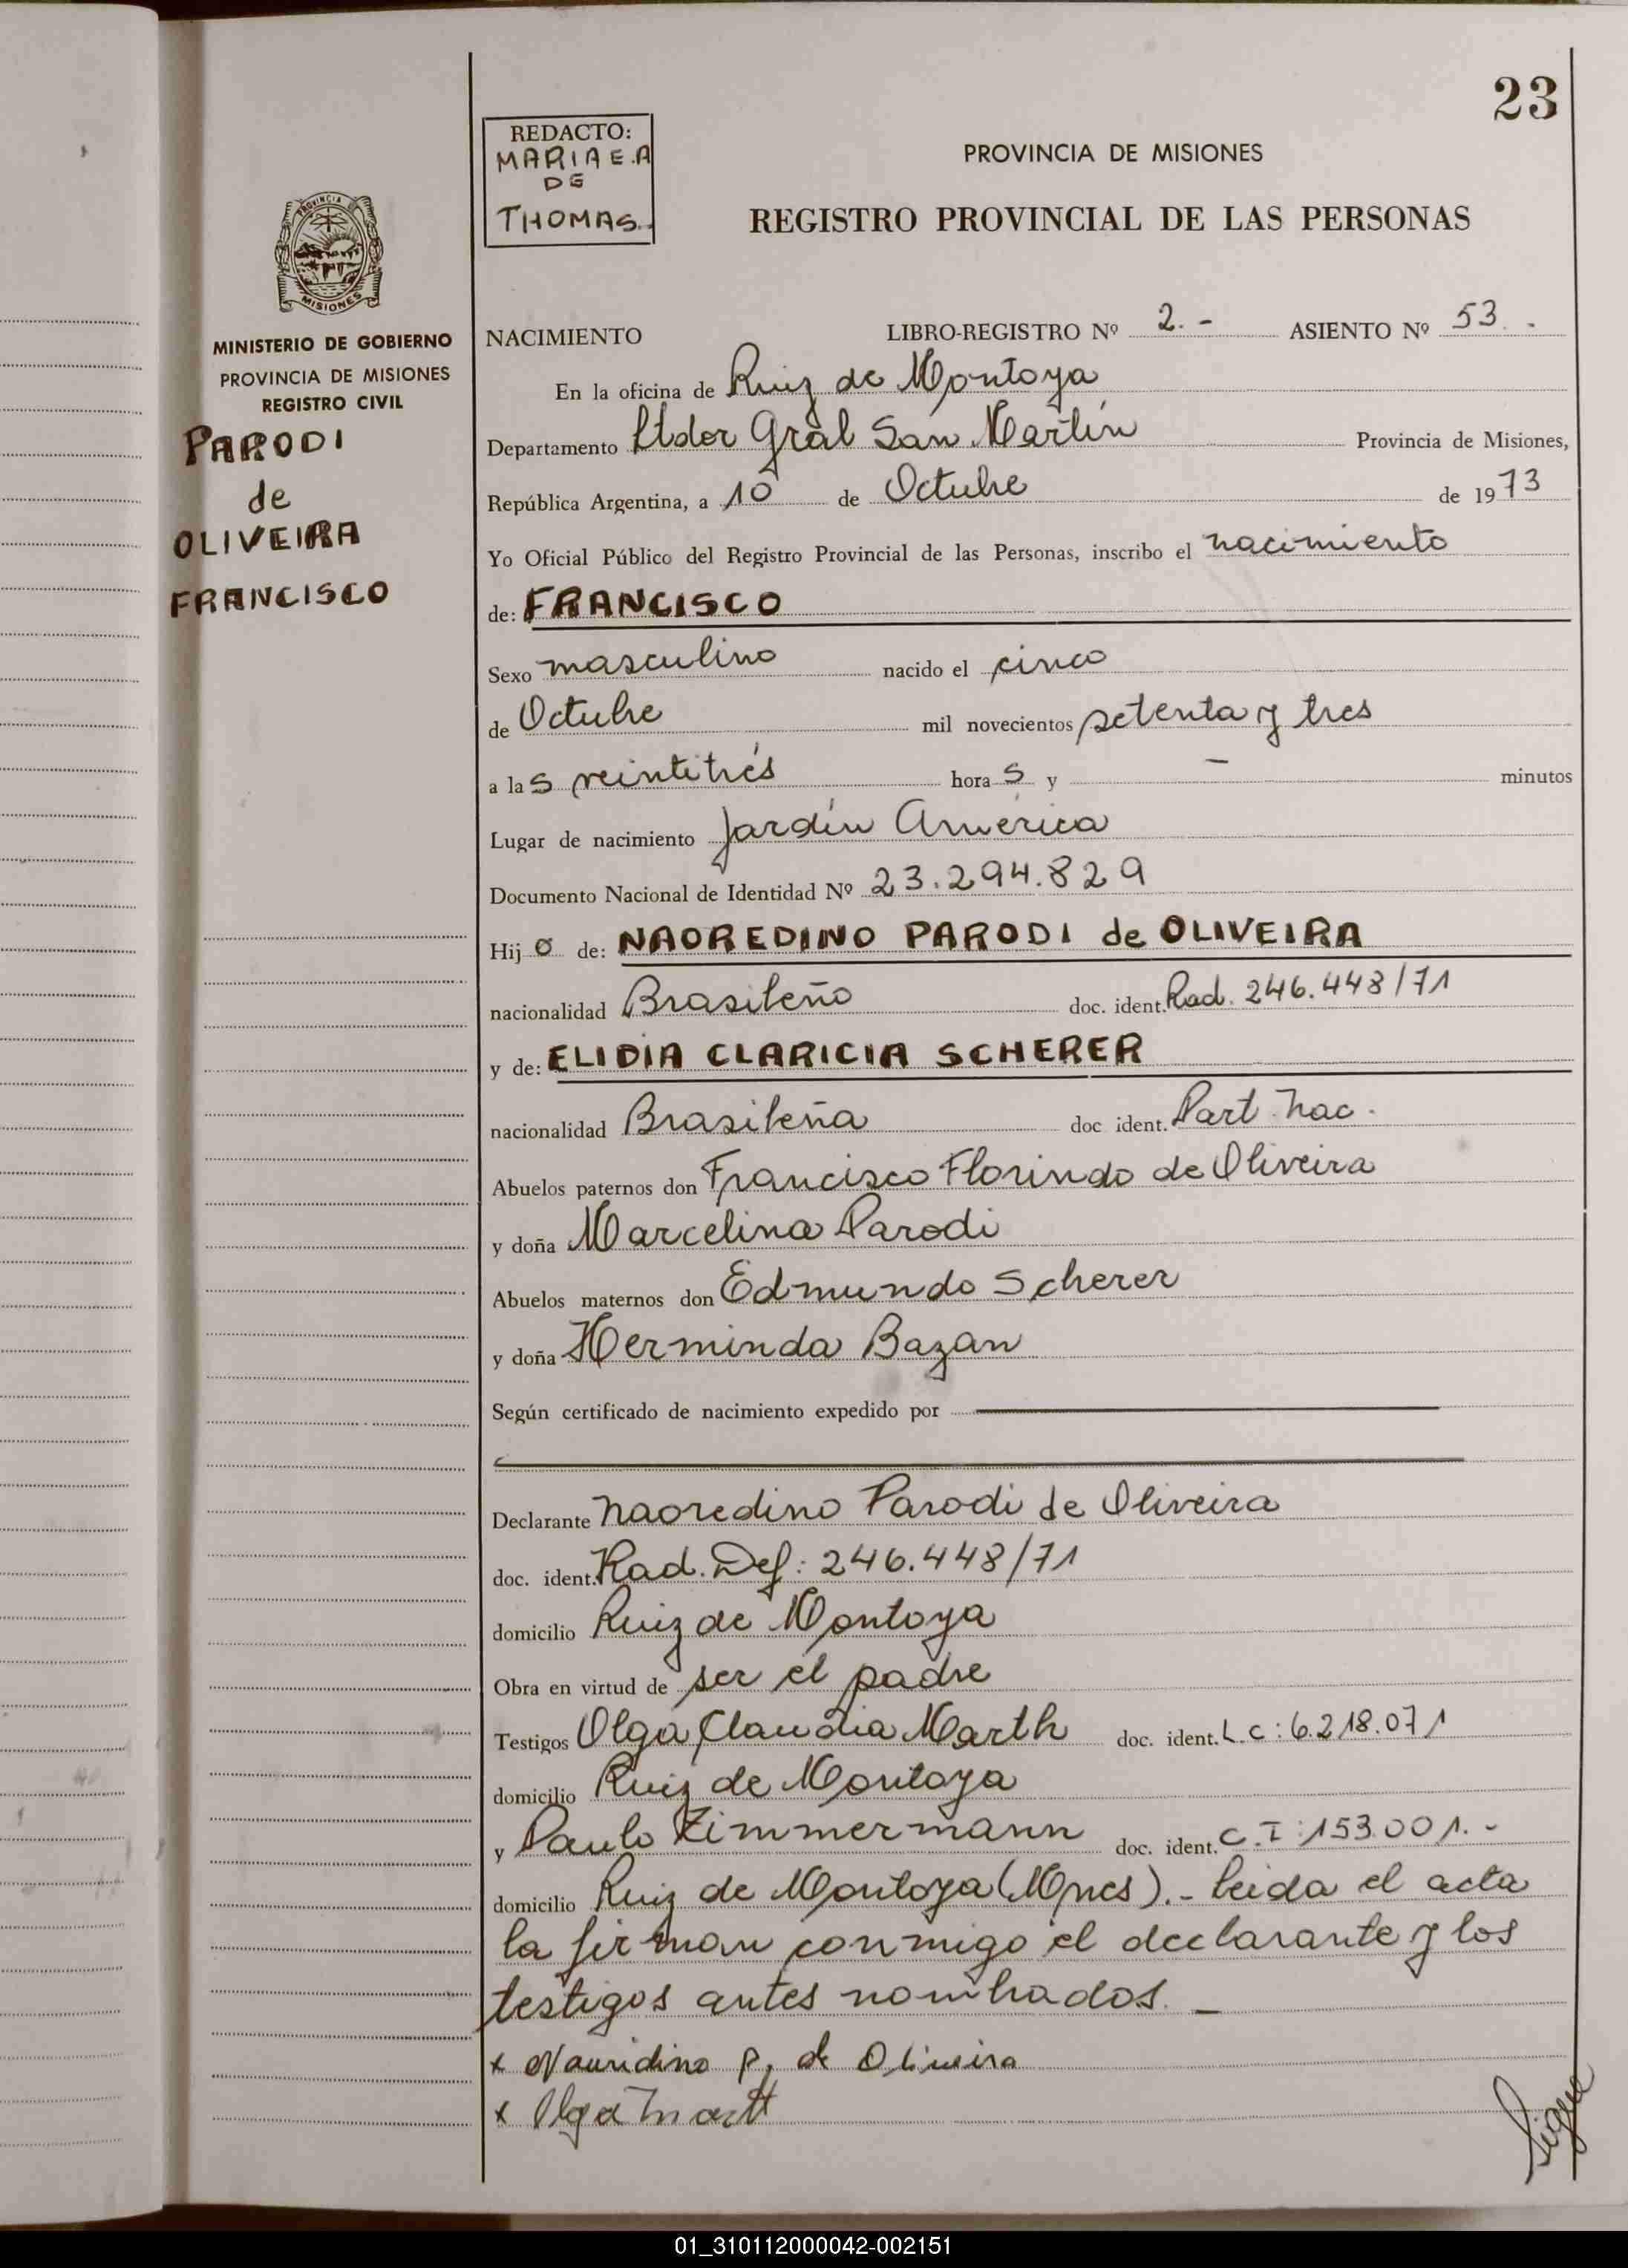 23
REDACTO:
MARIA E.A
DE
THOMAS.
PROVINCIA DE MISIONES
REGISTRO PROVINCIAL DE LAS PERSONAS
PROVINCIA DE
MISIONES
MINISTERIO DE GOBIERNO
PROVINCIA DE MISIONES
REGISTRO CIVIL
PARODI
de
OLIVEIRA
FRANCISCO
NACIMIENTO LIBRO-REGISTRO Nº 2.- ASIENTO Nº 53.
En la oficina de Ruiz de Montoya
Departamento Ltdor Gràl San Martín Provincia de Misiones,
República Argentina, a 10 de Octubre de 1973
Yo Oficial Público del Registro Provincial de las Personas, inscribo el nacimiento
de: FRANCISCO
Sexo masculino nacido el cinco
de Octubre mil novecientos setenta y tres
a las veintitrés horas y - minutos
Lugar de nacimiento Jardín América
Documento Nacional de Identidad Nº 23.294.829
Hijo de: NAOREDINO PARODI de OLIVEIRA
nacionalidad Brasileño doc. ident. Rad. 246.448/71
y de: ELIDIA CLARICIA SCHERER
nacionalidad Brasileña doc ident. Part. nac.
Abuelos paternos don Francisco Florindo de Oliveira
y doña Marcelina Parodi
Abuelos maternos don Edmundo Scherer
y doña Herminda Bazan
Según certificado de nacimiento expedido por
Declarante Naoredino Parodi de Oliveira
doc. ident. Rad. Def: 246.448/71
domicilio Ruiz de Montoya
Obra en virtud de ser el padre
Testigos Olga Claudia Marth doc. ident. L.C: 6.218.071
domicilio Ruiz de Montoya
y Paulo Zimmermann doc. ident. C.I: 153.001.-
domicilio Ruiz de Montoya (Mnes).- Leida el acta
la firman conmigo el declarante y los
testigos antes nombrados. -
x Nauridino P. de Oliveira
x Olga Marth
Sigue
01_310112000042-002151